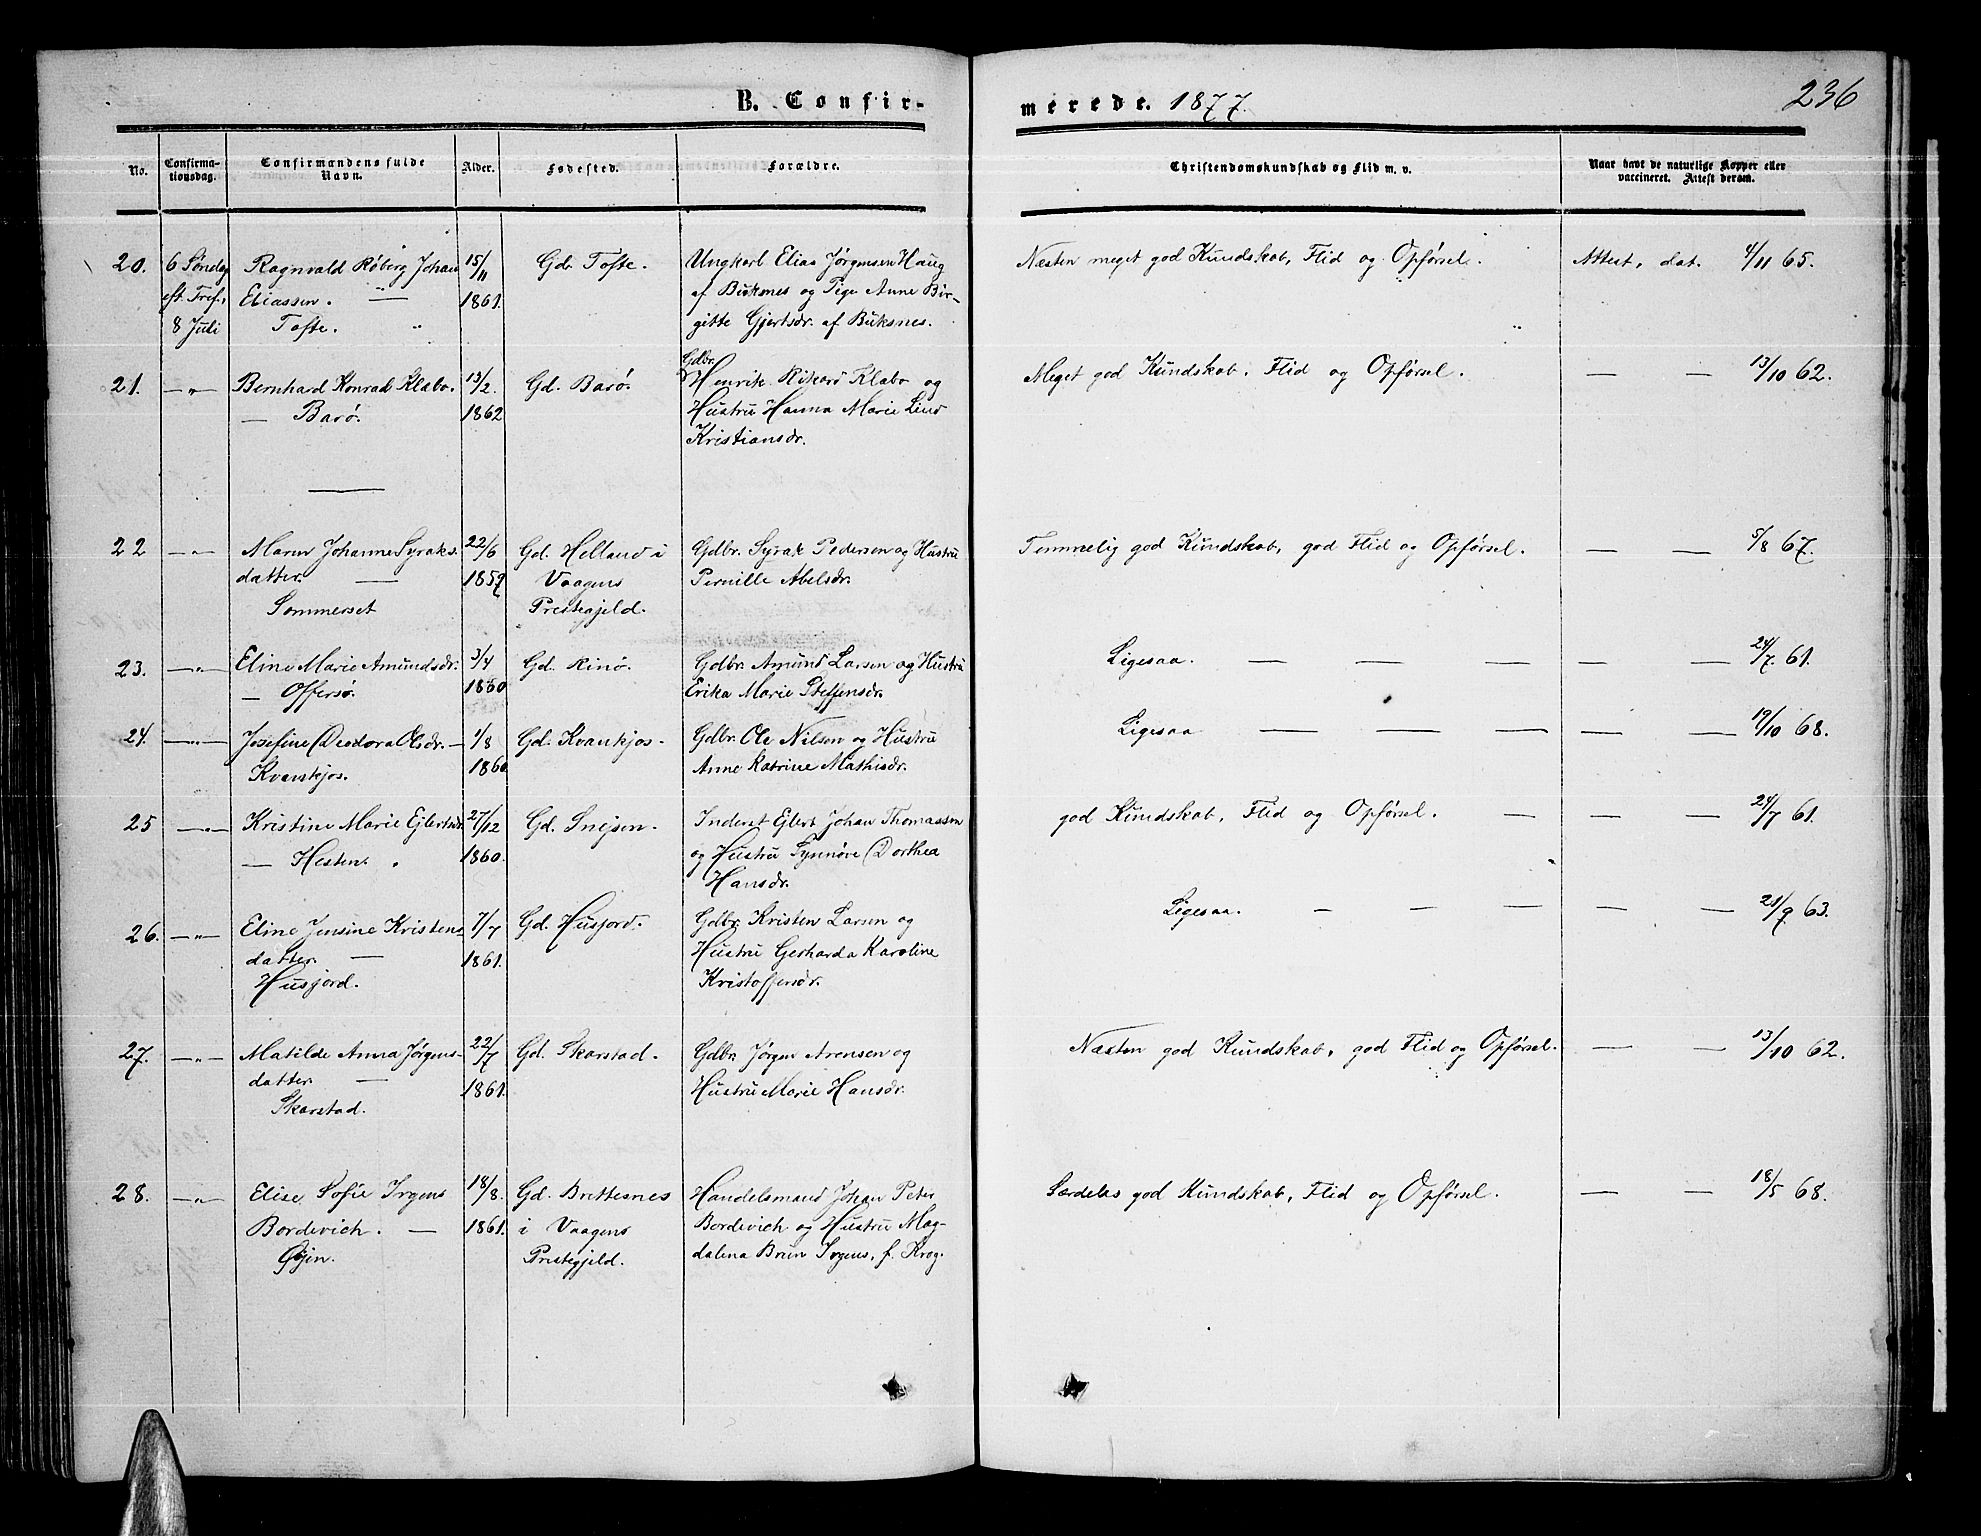 B. Confir-
merede. 1877.
236
No.
Confirma-
tionsdag.
Confirmandens fulde
Navn.
Alder.
Fødested.
Forældre.
Christendomskundskab og Flid m. v.
Naar havt de naturlige Kopper eller
vaccineret. Attest derom.
20. 6 Søndag Ragnvald Røberg Johan 15/11 Gd. Tofte. Ungkarl Elias Jørgensen Haug Næsten meget god Kundskab, Flid og Opførsel. Attest, dat. 4/11 65.
eft. Tref., Eliassen. — 1861. af Buksnes og Pige Anne Bir-
8 Juli Tofte. " gitte Gjertsdr. af Buksnes. "
21. —"— Bernhard Konrad Klæbo. 13/2. Gd. Barø. Gdbr. Henrik Rikard Klæbo og Meget god Kundskab, Flid og Opførsel. — — 13/10 62.
— Barø. 1862 Hustru Hanna Marie Lind
Kristiansdr.
22 —"— Maren Johanne Syraks- 22/6 Gd. Helland i Gdbr. Syrak Pedersen og Hustru Temmelig god Kundskab, god Flid og Opførsel. — — 5/8 67.
datter. — 1859 Vaagens Pernille Abelsdr.
Sommerset Prestegjeld.
23. —"— Eline Marie Amundsdr. 3/4 Gd. Rinø. Gdbr. Amund Larsen og Hustru Ligesaa. — — — — — — 24/7. 61.
— Offersø. 1860 Erika Marie Steffensdr.
24. —"— Josefine Deodora Olsdr. — 1/8 Gd. Kvankjos. Gdbr. Ole Nilsen og Hustru Ligesaa — — — — — — 19/10 68.
Kvankjos. 1860. Anne Katrine Mathisdr.
25 —"— Kristine Marie Ejlertsdr. 27/12 Gd. Snejsen. Inderst Ejlert Johan Thomassen god Kundskab, Flid og Opførsel. — — — 24/7 61.
— Hesten. " 1860. og Hustru Synnøve Dorthea
Hansdr.
26. —"— Eline Jensine Kristens- 7/7 Gd. Husjord. Gdbr. Kristen Larsen og Ligesaa. — — — — — 21/9 63.
datter. — 1861. Hustru Gerharda Karoline
Husjord. Kristoffersdr.
27. —"— Matilde Anna Jørgens- 22/7 Gd. Skarstad. Gdbr. Jørgen Arensen og Næsten god Kundskab, god Flid og Opførsel. — — 13/10 62.
datter. — 1861. Hustru Marie Hansdr.
Skarstad.
28. —"— Elise Sofie Irgens 18/8. Gd. Brettesnes Handelsmand Johan Peter Særdeles god Kundskab, Flid og Opførsel. — — 18/5 68.
Bordevich. — 1861. i Vaagens Bordevich og Hustru Mag-
Øjen. Prestegjeld. dalena Brun Irgens, f. Krog.